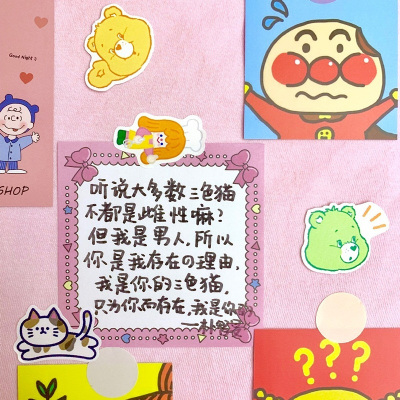 Good Night :)
SHOP
听说大多数三色猫
不都是雌性嘛?
但我是男人,所以
你是我存在の理由,
我是你的三色猫,
只为你而存在,我是你的
一朴
???